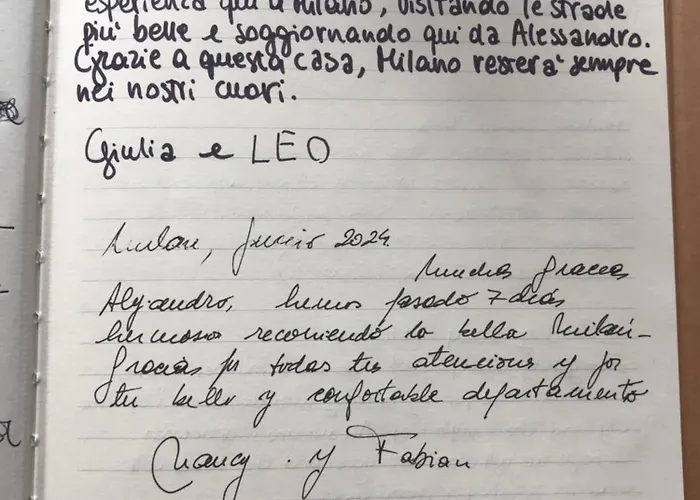 esperienza qui a Milano, visitando le strade
più belle e soggiornando qui da Alessandro.
Grazie a questa casa, Milano resterà sempre
nei nostri cuori.
Giulia e LEO
Milan, Junio 2024.
Muchas gracias
Alejandro, hemos pasado 7 días
hermosos recorriendo la bella Milán-
Gracias por todas tus atenciones y por
tu bello y confortable departamento
Nancy . y Fabian